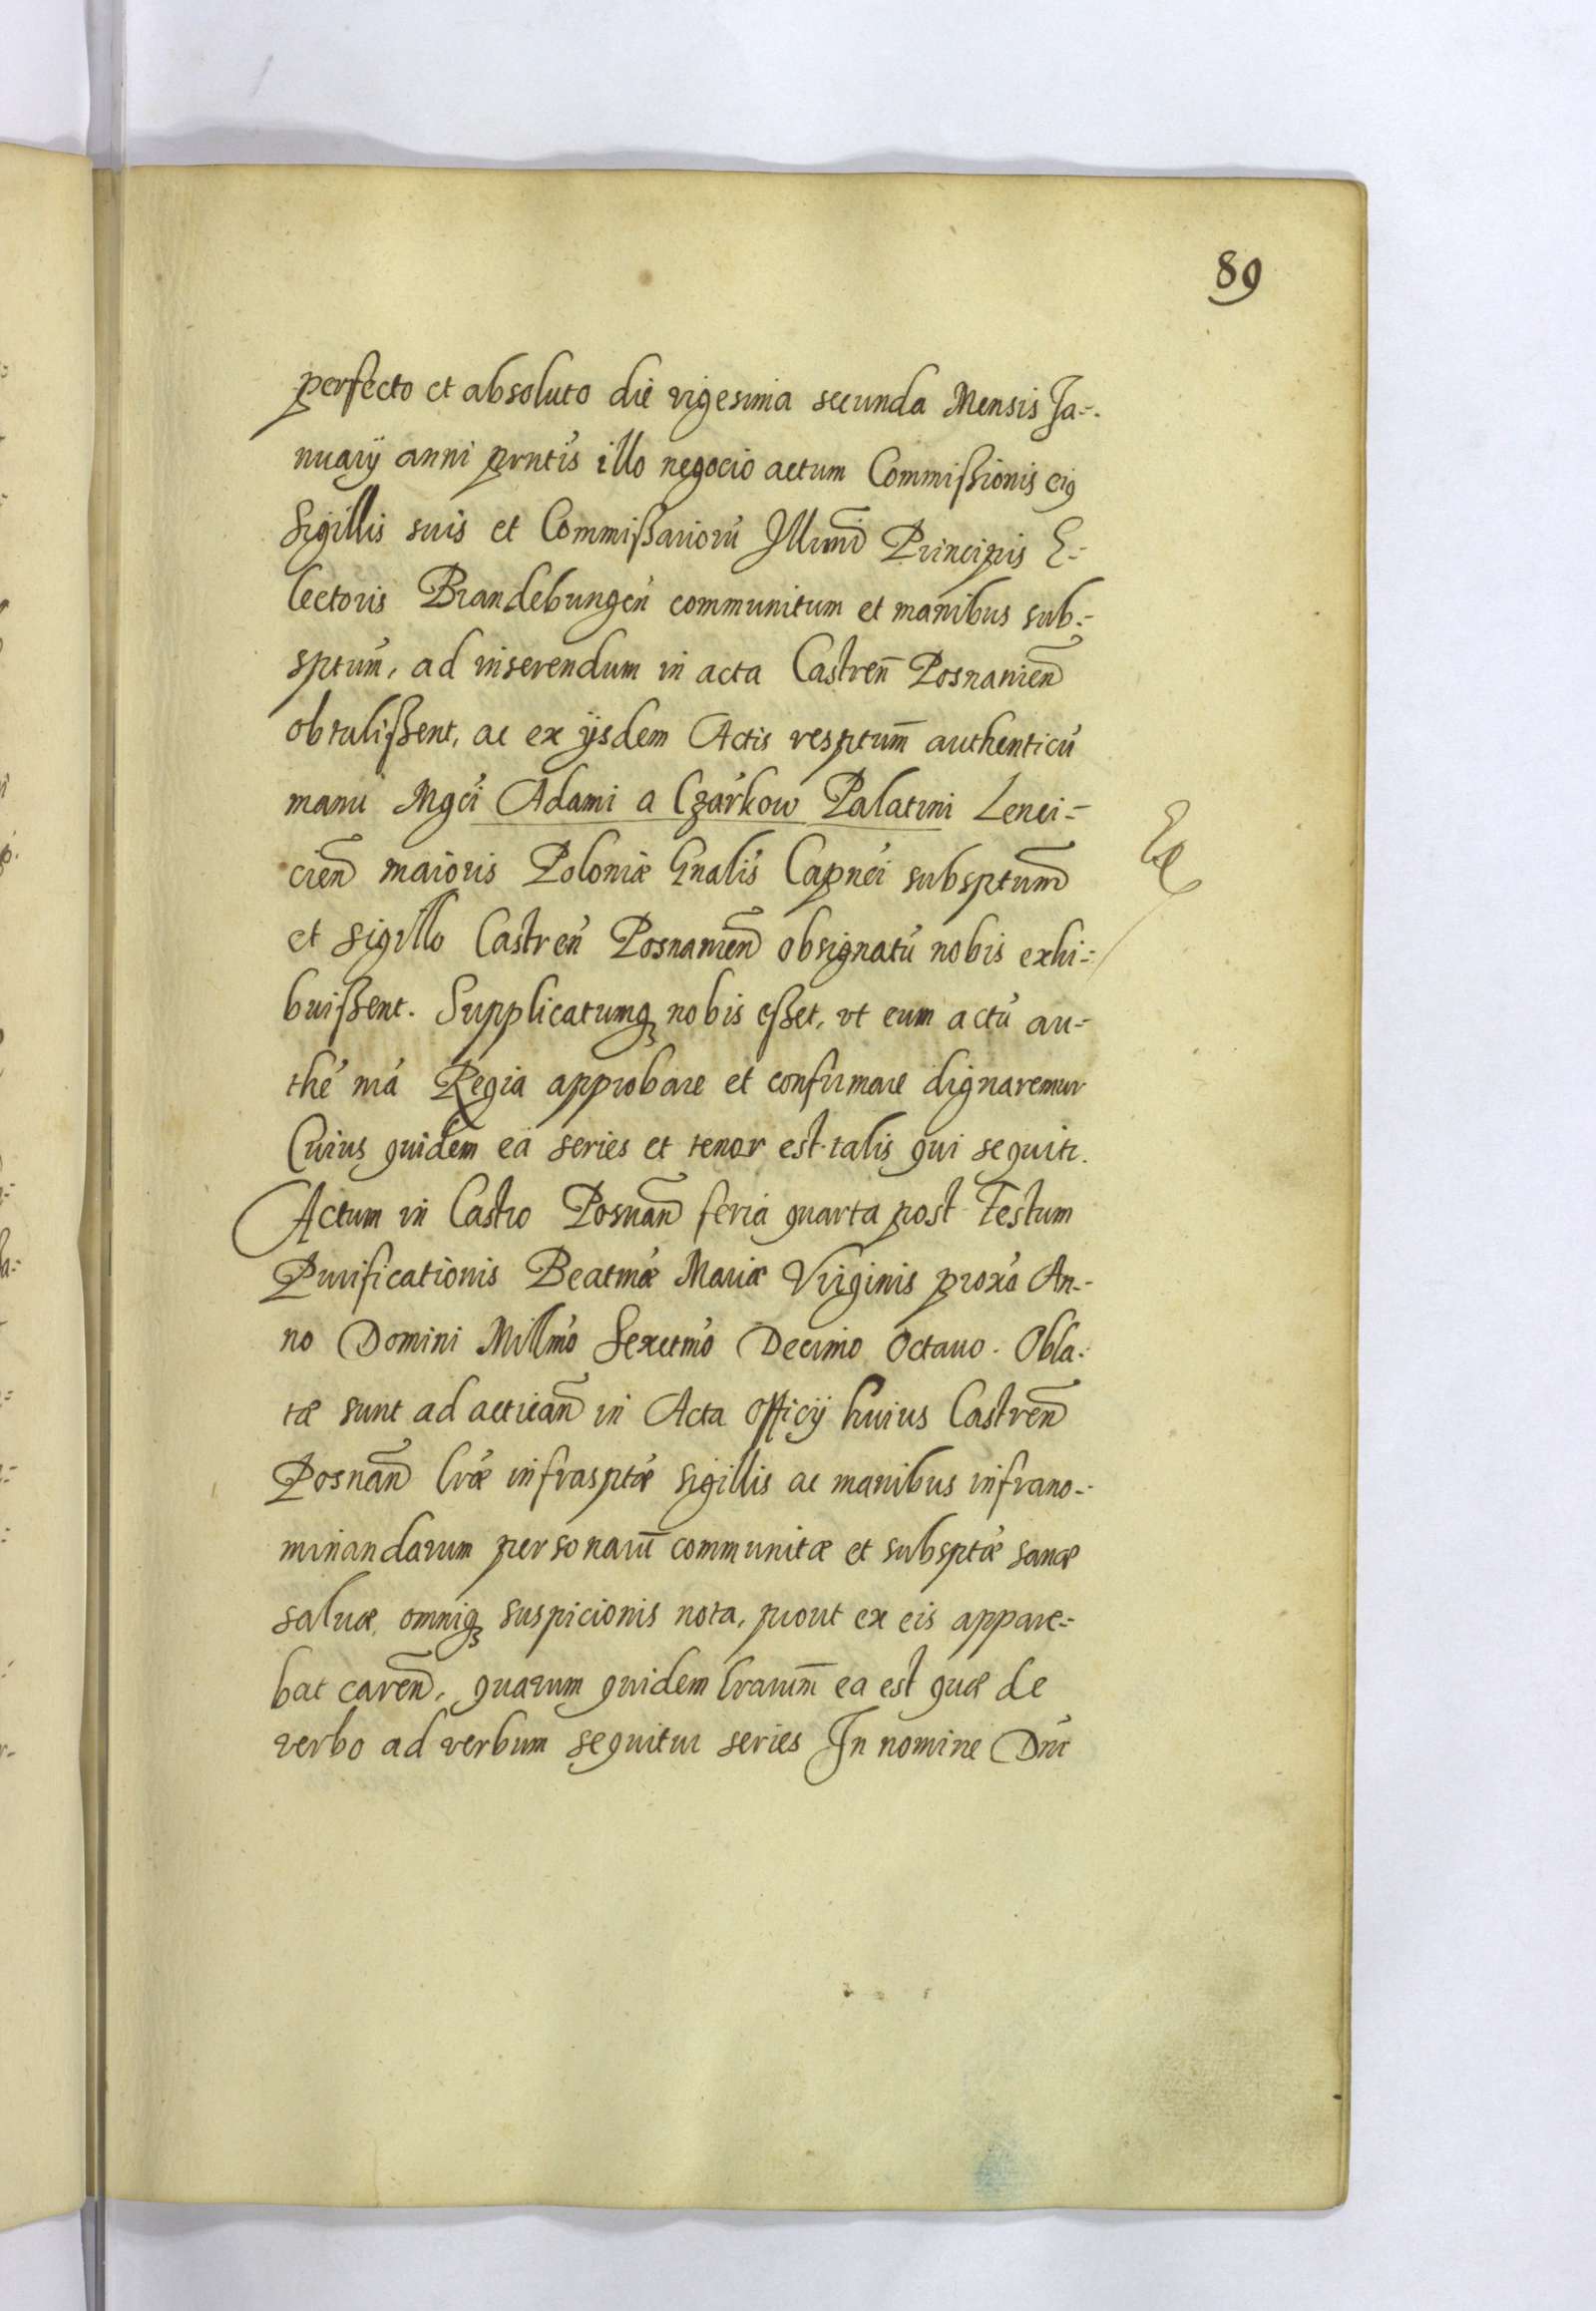 89
perfecto et absoluto die vigesima secunda Mensis Ja=
nuarij anni prntis illo negocio actum Commißionis eiꝰ
Sigillis suis et Commißariorū Illumi Principis E=
lectoris Brandebungeñ communitum et manibus sub=
sptum, ad inserendum in acta Castreñ Posnanieñ
obtulißent, ac ex ijsdem Actis resptum̄ authenticū
manu Mgci Adami a Czarkow Palatini Lenci=
cieñ maioris Poloniæ Gnalis Capnei subsptum
et sigillo Castreñ Posnanieñ obsignatū nobis exhi=
buißent. Supplicatumqꝫ nobis eßet, vt eum actū au=
the ma Regia approbare et confirmare dignaremur
Cuius quidem ea series et tenor est talis qui sequitr.
Actum in Castro Posnañ feria quarta post Festum
Purificationis Beatmæ Mariæ Virginis proxa An=
no Domini Millmo Sexctmo Decimo Octauo. Obla=
tæ sunt ad actieañ in Acta Officij huius Castreñ
Posnañ lræ infrasptæ sigillis ac manibus infrano=
minandarum personarū communitæ et subsptæ sanæ
saluæ, omniqꝫ suspicionis nota, prout ex eis appare=
bat careñ, quarum quidem lrarum̄ ea est quæ de
verbo ad verbum sequitur series In nomine Dni